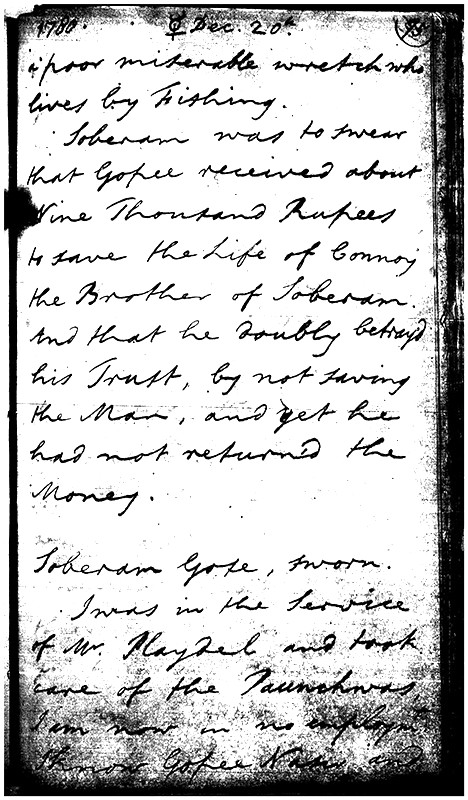 1780. ♀ Dec. 20th. 
a poor miserable wretch who
lives by Fishing.
Soberam was to swear
that Gopee received about
Nine Thousand Rupees
to save the Life of Connoy
the Brother of Soberam.
And that he doubly betray'd
his Trust, by not saving
the Man, and yet he
had not return'd the
Money.
Soberam Gose, sworn.
I was in the Service
of Mr. Playdel and took
care of the Paunchwas
I am now in no employmt
I know Gopee and